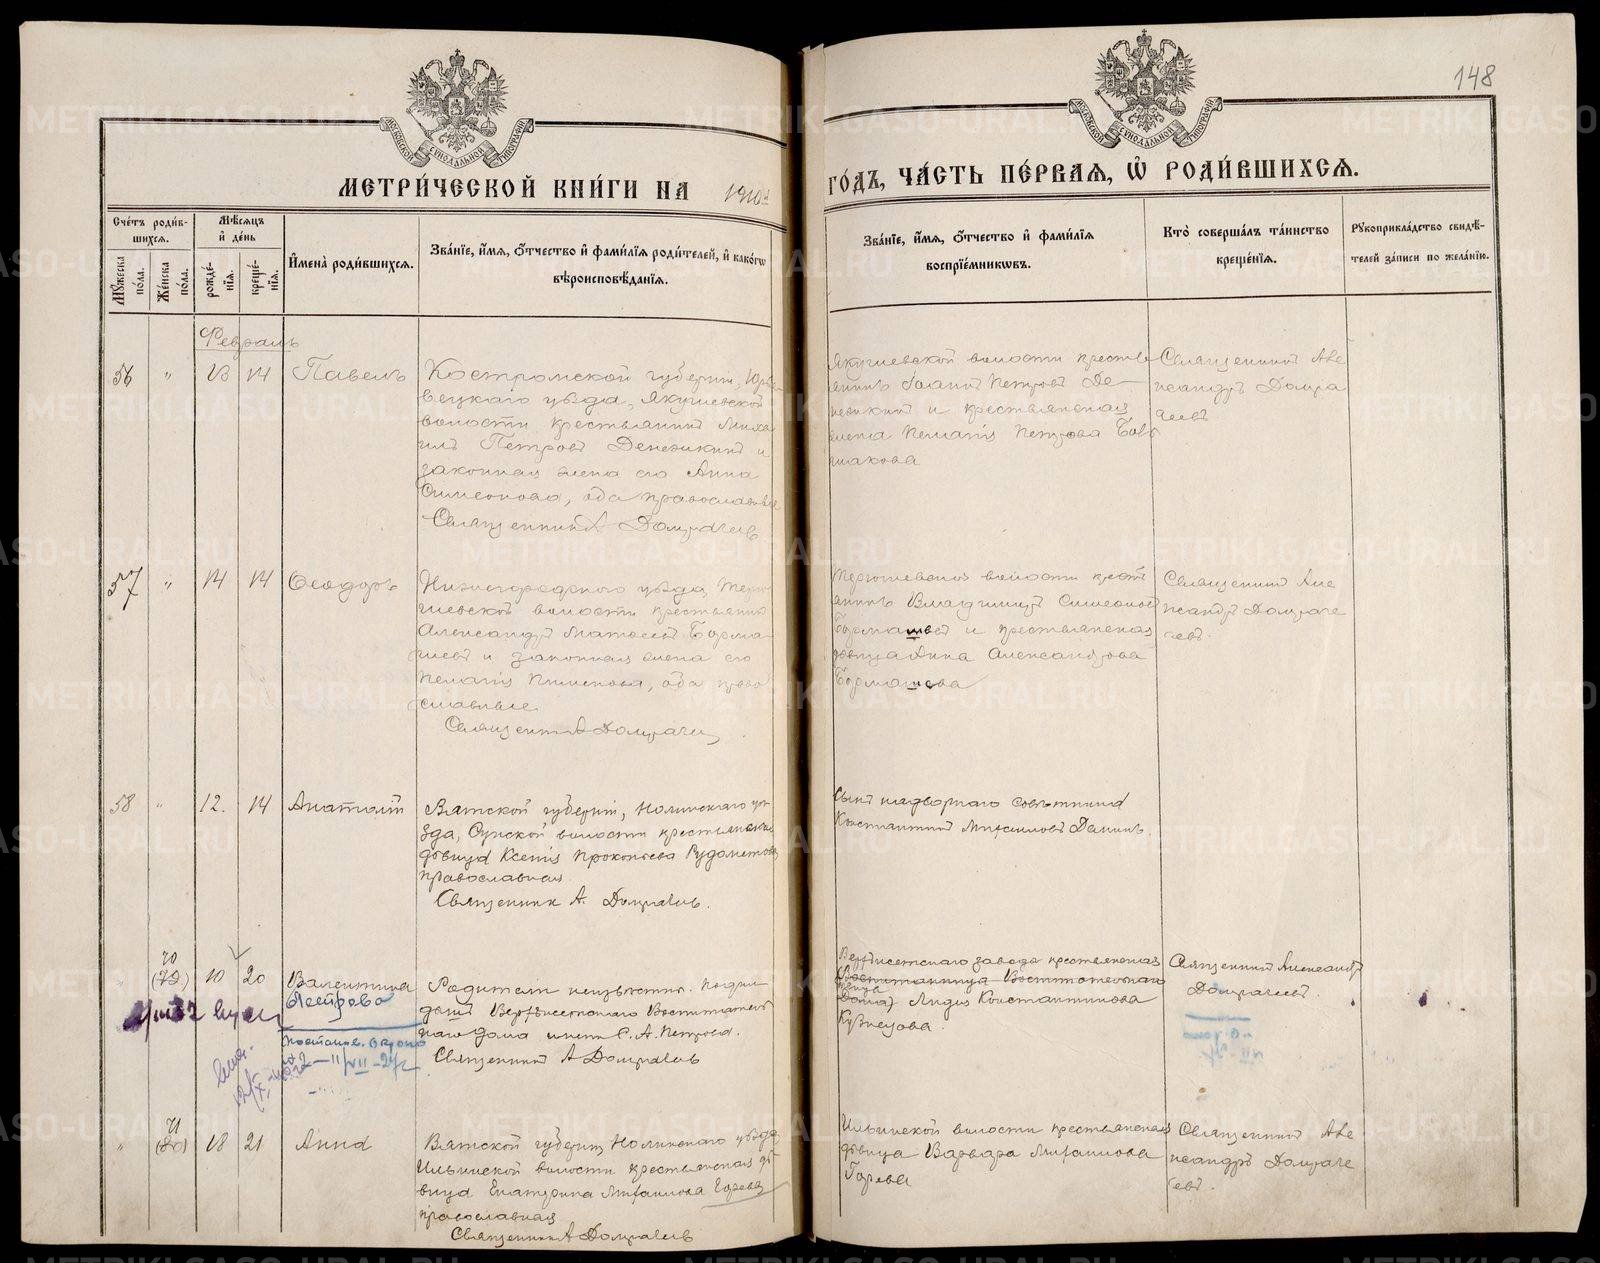 148
МЕТРИ́ЧЕСКОЙ КНИ́ГИ НА 1910й
ГО́ДЪ, ЧА́СТЬ ПЕ́РВАЯ, Ѡ҆ РОДИ́ВШИХСЯ.
Сче́тъ роди́в-
шихся.
Мѣ́сяцъ
и҆ де́нь
Мꙋ́жеска
по́ла.
Же́нска
по́ла.
рожде́-
нїя.
креще́-
нїя.
И҆мена̀ роди́вшихся.
Зва́нїе, и҆́мя, ѻ҆́тчество и҆ фами́лїя роди́телей, и҆ како́гѡ
вѣроисповѣ́данїя.
Зва́нїе, и҆́мя, ѻ҆́тчество и҆ фами́лїя
воспрїе́мникѡвъ.
Кто̀ соверша́лъ та́инство
креще́нїя.
Рꙋкоприкла́дство свидѣ́-
телей за́писи по жела́нїю.
Февраль
56 " 13 14 Павелъ
Костромской губерніи, Юрье
вецкаго уѣзда, Якушевской
волости крестьянинъ Миха
илъ Петровъ Денежкинъ и
законная жена его Анна
Симеонова, оба православные
Священникъ А. Домрачевъ
Якушевской волости крестья
нинъ Іоаннъ Петровъ Де
нежкинъ и крестьянская
жена Пелагія Петрова
Священникъ Але
ксандръ Домра
чевъ
57 " 14 14 Ѳеодоръ
Нижегородскаго уѣзда, Терю
шевской волости крестьянинъ
Александръ Матвеевъ Борма
шевъ и законная жена его
Пелагія Пименова, оба право
славные
Священникъ А Домрачевъ
Терюшевской волости крестья
нинъ Владимиръ Симеоновъ
Бормашевъ и крестьянская
дѣвица Анна Александрова
Бормашева
Священникъ Але
ксандръ Домраче
чевъ.
58 " 12. 14 Анатолій
Вятской губерніи, Нолинскаго уѣ
зда, Сунской волости крестьянская
дѣвица Ксенія Прокопьева Рудометова
православная.
Священникъ А. Домрачевъ.
Сынъ надворнаго совѣтника
Константинъ Михаиловъ Данинъ.
70
" 10 20 Валентина
Родители неизвѣстны. Подки
дышъ Верхъисетскаго Воспитатель
наго дома имени С. А. Петрова.
Священникъ А Домрачевъ
Верхъисетскаго завода крестьянская
Лидія Константинова
Кузнецова.
Священникъ Александръ
Домрачевъ.
71
" 18 21 Анна
Вятской губерніи Нолинскаго уѣзда
Ильинской волости крестьянская дѣ
вица Екатерина Михаилова Горева
православная
Священникъ А Домрачевъ
Ильинской волости крестьянская
дѣвица Варвара Михаилова
Горева
Священникъ Але
ксандръ Домраче
евъ.
METRIKI.GASO-URAL.RU